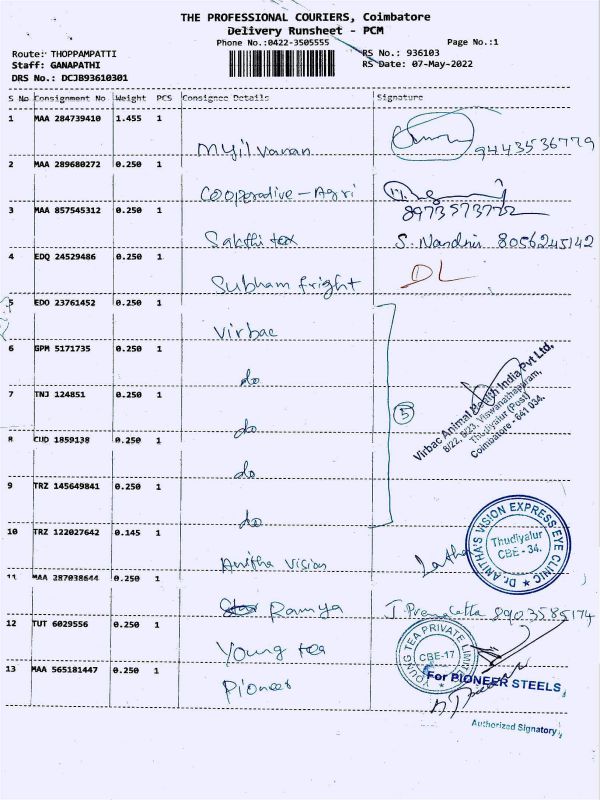 THE PROFESSIONAL COURIERS, Coimbatore
Delivery Runsheet - PCM
Phone No.:0422-3505555 Page No.:1
Route: THOPPAMPATTI RS No.: 936103
Staff: GANAPATHI RS Date: 07-May-2022
DRS No.: DCJB93610301
S No Consignment No Weight PCS Consignee Details Signature
1 MAA 284739410 1.455 1
Myilvanan 9443536779
2 MAA 289680272 0.250 1
Cooperative - Agri 8973573722
3 MAA 857545312 0.250 1
Sakthi tex S. Nandhi 8056245142
4 EDQ 24529486 0.250 1
Subham fright DL
5 EDO 23761452 0.250 1
Virbac
6 GPM 5171735 0.250 1
do
7 TNJ 124851 0.250 1
do
5
Virbac Animal Health India Pvt Ltd,
8/22, 8/23, Viswanathapuram,
Thudiyalur (Post)
Coimbatore - 641 034.
8 CUD 1859138 0.250 1
do
9 TRZ 145649841 0.250 1
do
10 TRZ 122027642 0.145 1
Anitha Vision Latha
Dr. ANITHA'S VISION EXPRESS EYE CLINIC
Thudiyalur
CBE - 34.
11 MAA 287038644 0.250 1
Ramya J. Premalatha 8903585174
12 TUT 6029556 0.250 1
Young tea
YOUNG TEA PRIVATE LIMITED
CBE-17
13 MAA 565181447 0.250 1
Pioneer
For PIONEER STEELS,
Authorized Signatory